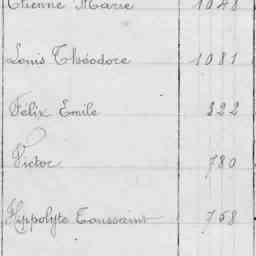 Etienne Marie 1048
Louis Théodore 1081
Félix Emile 822
Victor 780
Hippolyte Toussaint 758